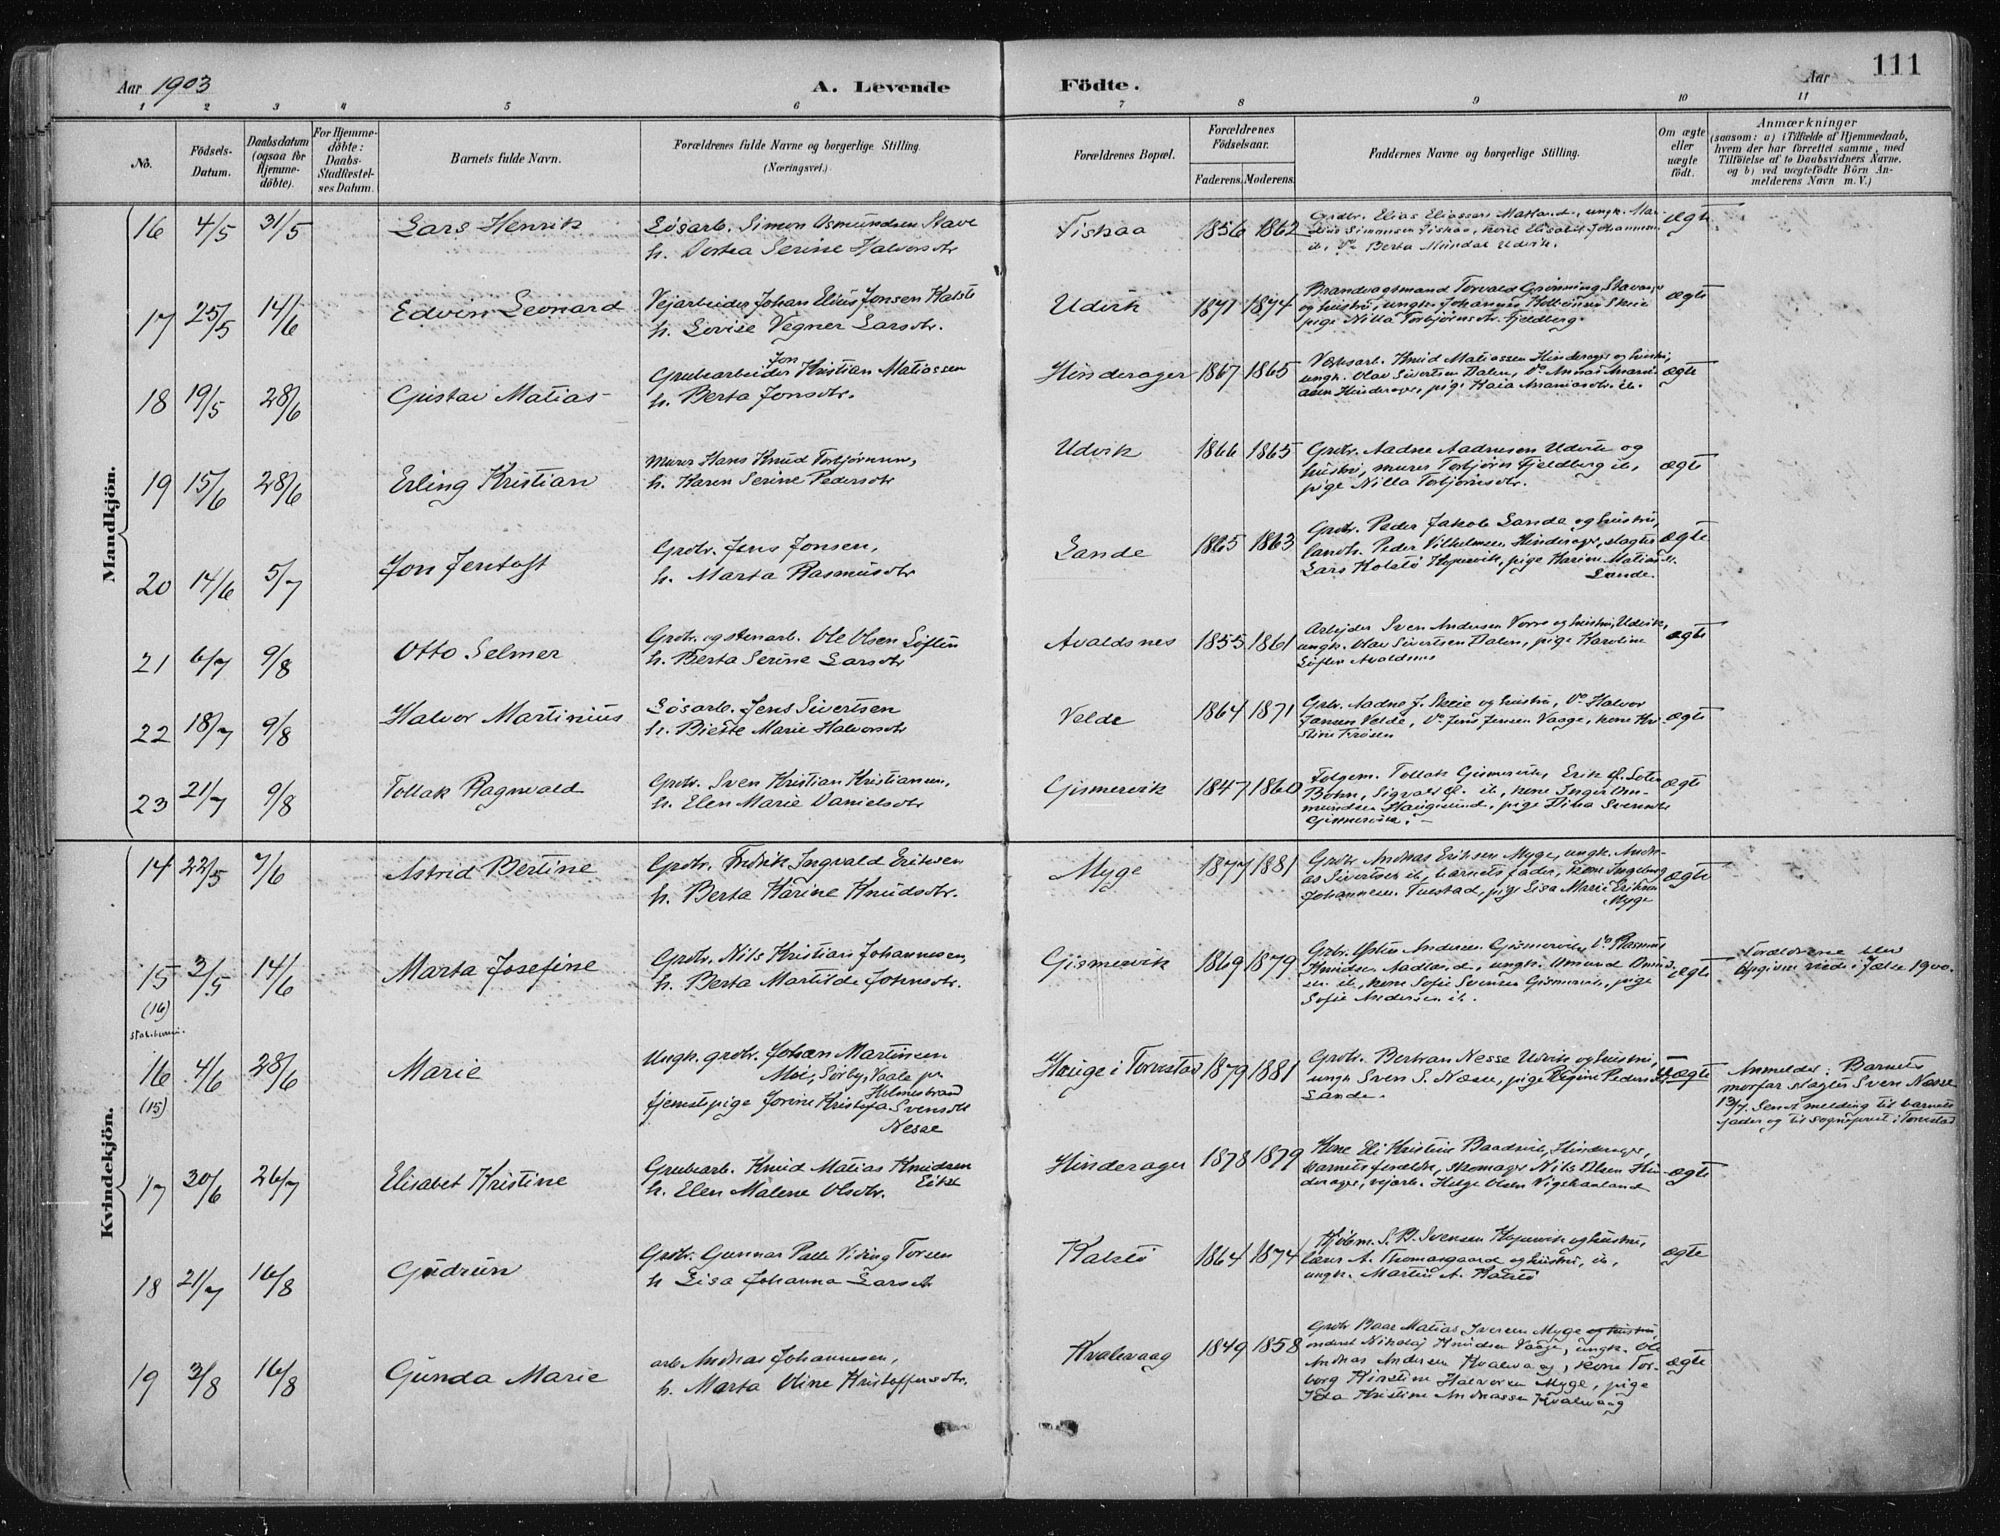 Aar 1903
A. Levende
Födte.
Aar
111
1 2 3 4 5 6 7 8 9 10 11
No.
Födsels-Datum.
Daabsdatum (ogsaa for Hjemme-döbte).
For Hjemme-döbte: Daabs-Stadfæstel-ses Datum.
Barnets fulde Navn.
Forældrenes fulde Navne og borgerlige Stilling. (Næringsvei.)
Forældrenes Bopæl.
Forældrenes Födselsaar.
Faderens. Moderens.
Faddernes Navne og borgerlige Stilling.
Om ægte eller uægte födt.
Anmærkninger
(saasom: a) i Tilfælde af Hjemmedaab,
hvem der har forrettet samme, med
Tilföielse af to Daabsvidners Navne,
og b) ved uægtefödte Börn An-
melderens Navn m. V.)
Mandkjön.
16 4/5 31/5 Lars Henrik
Løsarb. Simon Osmundsen Stave
h. Dortea Serine Halvorsdtr
Fiskaa 1856 1862
Grdbr. Elias Eliassen
Berta Mundal Udvik.
ægte
17 25/5 14/6 Edvin Leonard
Vejarbeider Johan Elius Jonsen Kalstø
h. Lovise Vegner Larsdtr.
Udvik 1871 1874
Brandvagtsmand Torvald Grønning Stavanger
og hustru, ungk. Johannes Skeie
pige Nilla Torbjørnsdtr. Fjeldberg.
ægte
18 19/5 28/6 Gustav Matias
Jon
Grubearbeider Kristian Matiassen
h. Berta Jonsdtr.
Hinderager 1867 1865
Værksarb. Knud Matiassen Hinderager og hustru,
ungk. Olav Sivertsen Dalen,
Hinderager, pige Ananiasdtr. ib.
ægte
19 15/6 28/6 Erling Kristian
Murer Hans Knud Torbjørnsen,
h. Karen Serine Pedersdtr
Udvik 1866 1865
Grdbr. Aadne Aadnesen Udvik og
hustru, murer Torbjørn Fjeldberg ib,
pige Nilla Torbjørnsdtr.
ægte
20 14/6 5/7 Jon Jentoft
Grdbr. Jens Jonsen,
h. Marta Rasmusdtr
Sande 1865 1863
Grdbr. Peder Jakob Sande og hustru,
landh. Peder Vilhelmsen Hinderager, slagter
Lars Kolstø Kopervik, pige Karine
Sande.
ægte
21 6/7 9/8 Otto Selmer
Grdbr. og stenarb. Ole Olsen Løften
h. Berta Serine Larsdtr
Avaldsnes 1855 1861
Arbejder Sven Andersen og hustru, Udvik,
ungk. Olav Sivertsen Dalen, pige Karoline
Løften Avaldsnes
ægte
22 18/7 9/8 Halvor Martinius
Løsarb. Jens Sivertsen
h. Marie Halvorsdtr
Velde 1864 1871
Grbr. Aadne J. Skeie og hustru, Do Halvor
Jansen Velde, Do Jens Jensen Vaage, kone Kri-
stine
ægte
23 21/7 9/8 Tollak Ragnvald
Grdbr. Sven Kristian Kristiansen,
h. Elen Marie Danielsdtr
Gismervik 1847 1860
Folgem. Tollak Gismervik, Erik
Bohn, Sigvald ib, kone Inger Om-
mundsen Haugesund, pige Dina Svensdtr
Gismervik.
ægte
Kvindekjön.
14 22/5 7/6 Astrid Bertine
Grdbr. Fredrik Ingvald Eriksen
h. Berta Karine Knudsdtr.
Myge 1877 1881
Grdbr Andreas Eriksen Myge, ungk. Andre-
as Sivertsen ib, barnets fader, kone Ingeborg
Johannesen Tuestad, pige Lisa Marie Eriksen
Myge
ægte
15 3/5 14/6 Marta Josefine
(16)
Grdbr. Nils Kristian Johannesen,
h. Berta Martilde Johnsdtr.
Gismervik 1869 1879
Grbr. Andersen Gismervik, Do Rasmus
Knudsen Aadland, ungk. Omund Omund-
sen ib, kone Sofie Svensen Gismervik, pige
Sofie Andersen ib.
ægte
Forældrene blev
viede i 1900.
16 4/6 28/6 Marie
(15)
Ungk. grdbr. Johan Martinsen
Moi, Sørby, Vaale pr
Holmestrand
tjenestepige Jorine Kristofa Svensdtr
Nesse
Hauge i Torvestad 1879 1881
Grdbr. Bertran Nesse Udvik og hustru,
ungk Sven S. Nesse, pige Regine Pedersdtr
Sande.
Uægte
Anmelder: Barnets
morfar slagter Sven Nesse
13/7. Sendt melding til barnets
fader og til sognepræst i Torvestad
17 30/6 26/7 Elisabet Kristine
Grubearb. Knud Matias Knudsen
h. Elen Malene Olsdtr.
Hinderager 1878 1879
Kone Eli Kristine Hinderager,
barnets forældre, skomager Nils Olsen Hin-
derager, vejarb. Helge Olsen
ægte
18 21/7 16/8 Gudrun
Grdbr. Gunnar Palle Viding Torsen
h Lisa Johanna Larsdtr
Kalstø 1864 1874
Kjøbm. S. B. Svensen Kopervik og hustru,
lærer A. Thomasgaard og hustru, ib,
ungk. Martin A. Kalstø
ægte
19 3/8 16/8 Gunda Marie
arb. Andreas Johannesen,
h. Marta Oline Kristoffersdtr.
Kvalevaag 1849 1858
Grdbr Baar Matias Iversen Myge og hustru,
Nikolaj Knudsen Vaage, ungk. Ole
Andreas Andersen Kvalevaag, kone Tor-
borg Kirstine Halvorsen Myge, pige
Ida Kristine Andreassen Kvalevaag
ægte